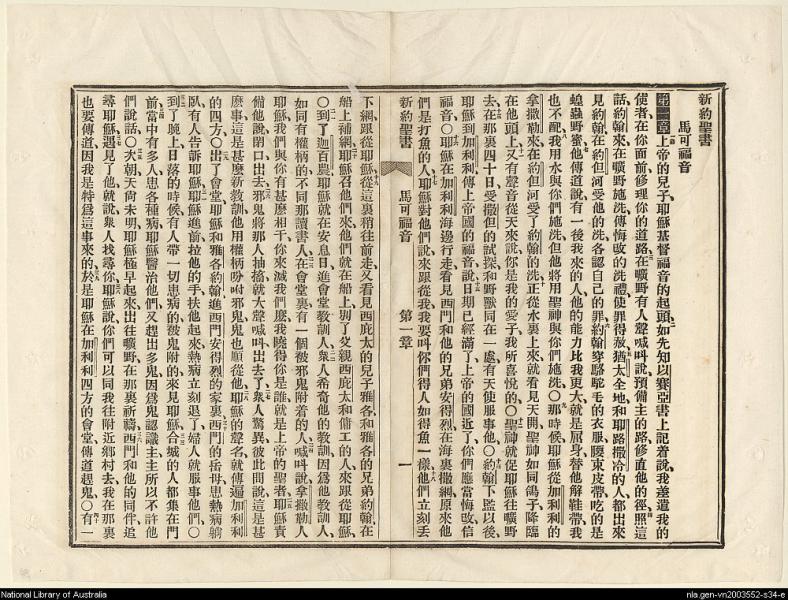 新約聖書
馬可福音
第一章 上帝的兒子耶穌基督福音的起頭、如先知以賽亞書上記着說、我差遣我的
使者在你面前修理你的道路、在曠野有人聲喊叫說、預備主的路、修直他的徑、照這
話約翰來在曠野施洗、傳悔改的洗禮、使罪得赦、猶太全地和耶路撒冷的人、都出來
見約翰、在約但河受他的洗、各認自己的罪、約翰穿駱駝毛的衣服、腰束皮帶、吃的是
蝗蟲野蜜、他傳道說、有一後我來的人、他的能力比我更大、就是屈身替他解鞋帶、我
也不配、我用水與你們施洗、但他將用聖神與你們施洗、○那時候耶穌從加利利的
拿撒勒來、在約但河受了約翰的洗、正從水裏上來、就看見天開、聖神如同鴿子降臨
在他頭上、又有聲音從天來說、你是我的愛子、我所喜悅的、○聖神就促耶穌往曠野
去、在那裏四十日受撒但的試探、和野獸同在一處、有天使服事他、○約翰下監以後、
耶穌到加利利傳上帝國的福音、說、日期已經滿了、上帝的國近了、你們應當悔改信
福音、○耶穌在加利利海邊行走、看見西門和他的兄弟安得烈、在海裏撒網、原來他
們是打魚的人、耶穌對他們說、來跟從我、我要叫你們得人如得魚一樣、他們立刻丟
新約聖書 馬可福音 第一章 一
下網跟從耶穌、從這裏稍往前走、又看見西庇太的兒子雅各和雅各的兄弟約翰、在
船上補網、耶穌召他們來、他們就在船上、別了父親西庇太和傭工的人、來跟從耶穌、
○到了迦百農、耶穌就在安息日、進會堂教訓人、衆人希奇他的教訓、因爲他教訓人、
如同有權柄的、不同那讀書人、在會堂裏有一個被邪鬼附着的人、喊叫說、拿撒勒人
耶穌、我們與你有甚麼相干、你來滅我們麼、我曉得你是誰、就是上帝的聖者、耶穌責
備他說、閉口、出去、邪鬼將那人抽搐、就大聲喊叫出去了、衆人驚異、彼此問說、這是甚
麽事、這是甚麽新教訓、他用權柄吩咐邪鬼、鬼也順從他、耶穌的聲名、就傳遍加利利
的四方、○出了會堂、耶穌和雅各約翰進西門安得烈的家裏、西門的岳母患熱病躺
臥、有人告訴耶穌、耶穌進前拉他的手、扶他起來、熱病立刻退了、婦人就服事他們、○
到了晚上日落的時候、有人帶一切患病的、被鬼附的、來見耶穌、合城的人都集在門
前、當中有多人患各種病、耶穌醫治他們、又趕出多鬼、因爲鬼認識主、主所以不許他
們說話、○次朝天尚未明、耶穌極早起來、出往曠野、在那裏祈禱、西門和他的同伴追
尋耶穌、遇見了他、就說、衆人找尋你、耶穌說、你們可以同我往附近鄉村去、我在那裏
也要傳道、因我是特爲這事來的、於是耶穌在加利利四方的會堂傳道趕鬼、○有一
National Library of Australia
nla.gen-vn2003552-s34-e